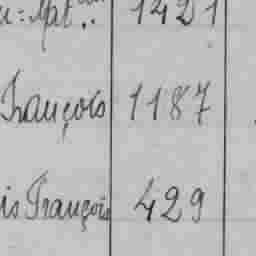 1421
François 1187
is François 429